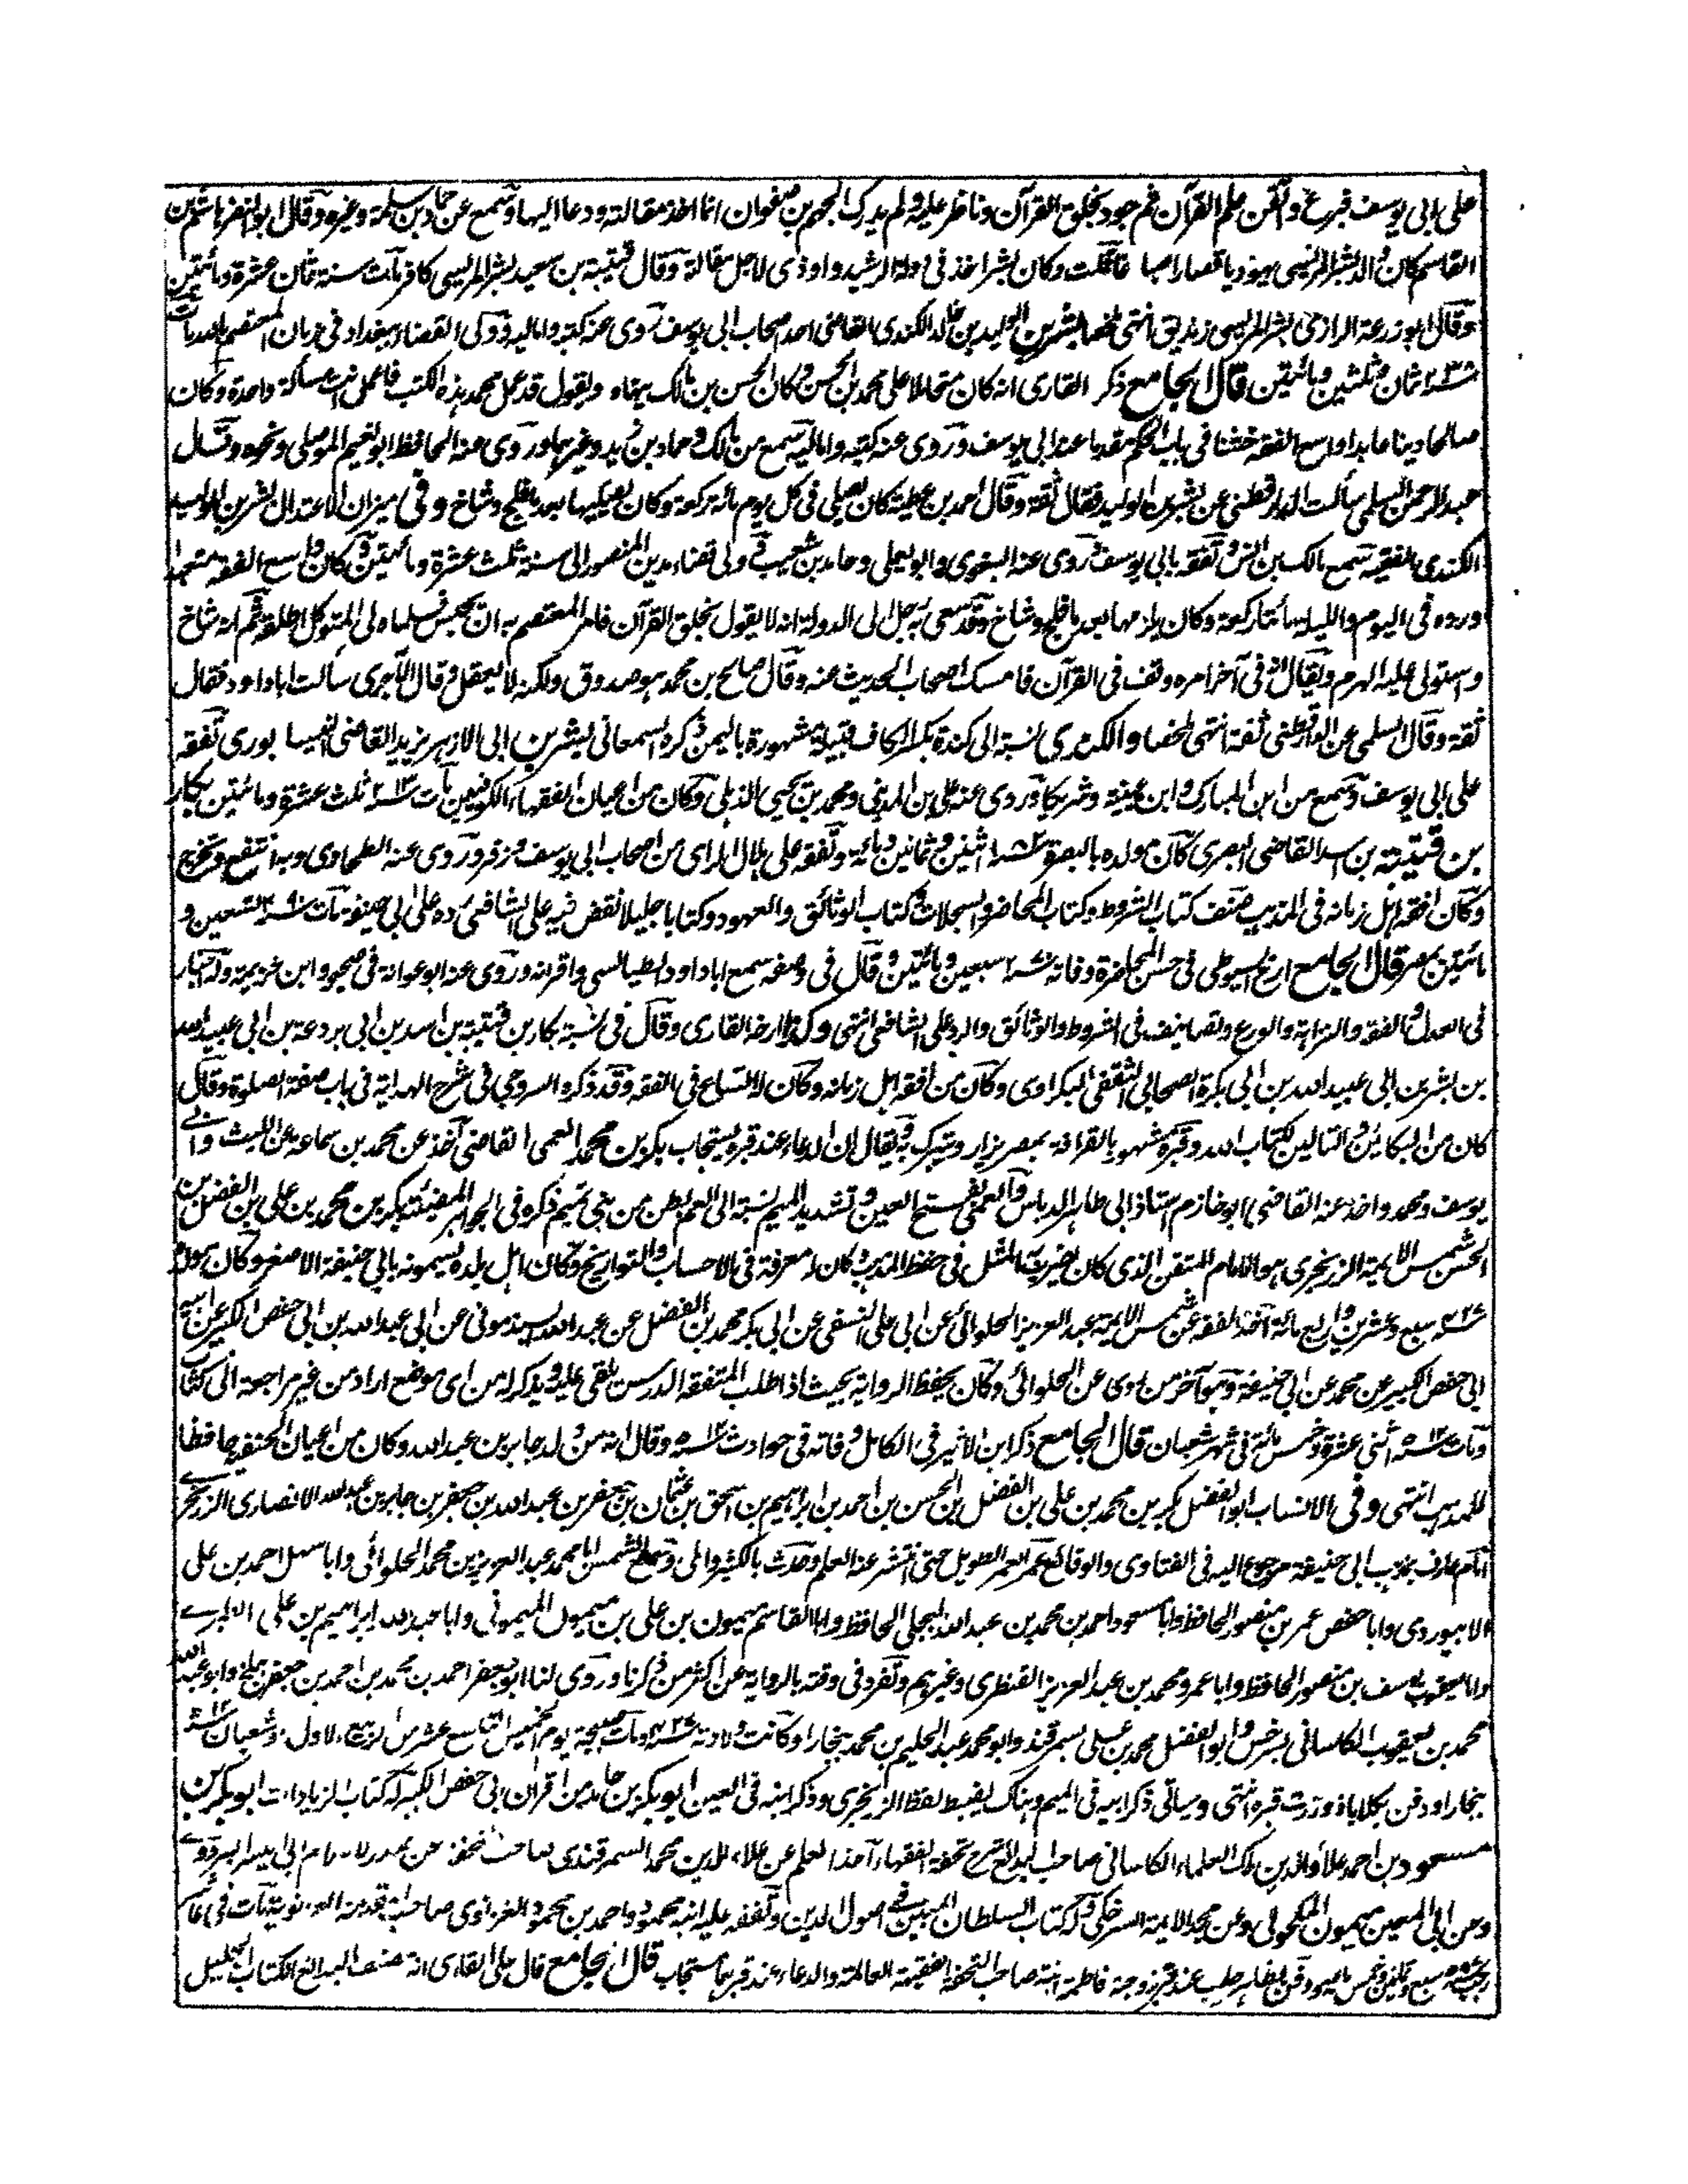 على ابى يوسف فبرع واتقن علم القرآن ثم جود بخلق القرآن وناظر عليه ولم يدرك الجهم بن صفوان انما اخذ مقالته ودعا اليها وسمع عن حماد بن سلمة وغيره وقال ابو النضر هاشم بن
القاسم كان والد بشر المريسى يهوديا قصارا صباغا قلت وكان بشر اخذ فى دولة الرشيد واوذى لاجل مقالة وقال قتيبة بن سعيد بشر المريسى كافر مات سنة ثمان عشرة ومأتين
وقال ابو زرعة الرازى بشر المريسى زنديق انتهى ملخصا بشر بن الوليد بن خالد الكندى القاضى احد اصحاب ابى يوسف روى عنه كتبه واماليه وولى القضاء ببغداد فى زمان المعتصم بالله مات
سنة ٢٣٨ ثمان وثلثين ومأتين قال الجامع ذكر القارى انه كان متحاملا على محمد بن الحسن وكان الحسن بن مالك ينهاه ويقول قد عمل محمد هذه الكتب فاعمل انت مسألة واحدة وكان
صالحا دينا عابدا واسع الفقه خشنا فى باب الحكم مقدما عند ابى يوسف وروى عنه كتبه واماليه سمع من مالك وحماد بن زيد وغيرهما وروى عنه الحافظ ابو نعيم الموصلى ونحوه وقال
عبد الرحمن السلمى سألت الدارقطنى عن بشر بن الوليد فقال ثقة وقال احمد بن عطية كان يصلى فى كل يوم مائة ركعة وكان يصليها بعد ما فلج وشاخ وفى ميزان الاعتدال بشر بن الوليد
الكندى الفقيه سمع مالك بن انس وتفقه بابى يوسف روى عنه البغوى وابو يعلى وحامد بن شعيب ولى قضاء مدين المنصور الى سنة ثلث عشرة ومأتين وكان واسع الفقه متعبدا
ورده فى اليوم والليلة مأتا ركعة وكان يلزمها بعد ما فلج وشاخ وقد سعى به رجل الى الدولة انه لا يقول بخلق القرآن فامر المعتصم به ان يحبس فلما ولى المتوكل اطلقه ثم انه شاخ
واستولى عليه الهرم ويقال انه فى آخر امره وقف فى القرآن فامسك اصحاب الحديث عنه وقال صالح بن محمد هو صدوق ولكنه لا يعقل وقال الآجرى سألت ابا داود فقال
ثقة وقال السلمى عن الدارقطنى ثقة انتهى ملخصا والكندى نسبة الى كندة بكسر الكاف قبيلة مشهورة باليمن ذكره السمعانى بشر بن ابى الازهر يزيد القاضى النيسابورى تفقه
على ابى يوسف وسمع من ابن المبارك وابن عيينة وشريكا وروى عنه على بن المدينى ومحمد بن يحيى الذهلى وكان من اعيان الفقهاء الكوفيين مات سنة ٢١٣ ثلث عشرة ومأتين بكار
بن قتيبة بن اسد القاضى البصرى كان مولده بالبصرة سنة ١٨٢ اثنين وثمانين ومائة وتفقه على هلال الراى من اصحاب ابى يوسف وزفر وروى عنه الطحاوى وبه انتفع وتخرج
وكان افقه اهل زمانه فى المذهب صنف كتاب الشروط وكتاب المحاضر والسجلات وكتاب الوثائق والعهود وكتابا جليلا نقض فيه على الشافعى رده على ابى حنيفة مات سنة ٢٩٠ تسعين و
مأتين بمصر قال الجامع ارخ السيوطى فى حسن المحاضرة وفاته سنة ٢٧٠ سبعين ومأتين وقال فى وصفه سمع ابا داود الطيالسى واقرانه وروى عنه ابو عوانة فى صحيحه وابن خزيمة وله اخبار
فى العدل والفقه والنزاهة والورع وتصانيف فى الشروط والوثائق والرد على الشافعى انتهى وكذا ارخه القارى وقال فى نسبه بكار بن قتيبة بن اسد بن ابى بردعة بن ابى عبيد الله
بن بشر بن ابى عبيد الله بن ابى بكرة الصحابى الثقفى البكراوى وكان من افقه اهل زمانه وكان له اتساع فى الفقه وقد ذكره السروجى فى شرح الهداية فى باب صفة الصلوة وقال
كان من البكائين والتالين لكتاب الله وقبره مشهور بالقرافة بمصر يزار ويتبرك به ويقال ان الدعاء عند قبره يستجاب بكر بن محمد العمى القاضى اخذ عن محمد بن سماعه عن الليث وابى
يوسف ومحمد واخذ عنه القاضى ابو خازم استاذ ابى طاهر الدباس والعمى بفتح العين وتشديد الميم نسبة الى العم بطن من بنى تميم ذكره فى الجواهر المضيئة بكر بن محمد بن على بن الفضل بن
الحسن شمس الائمة الزرنجرى هو الامام المتقن الذى كان يضرب به المثل فى حفظ المذهب وكان له معرفة فى الاحساب والتواريخ وكان اهل بلده يسمونه بابى حنيفة الاصغر وكان مولده
سنة ٤٢٧ سبع وعشرين واربع مائة اخذ الفقه عن شمس الائمة عبد العزيز الحلوائى عن ابى على النسفى عن ابى بكر محمد بن الفضل عن عبد الله السبذمونى عن ابى عبد الله بن ابى حفص الكبير عن ابيه
ابى حفص الكبير عن محمد عن ابى حنيفة وهو آخر من روى عن الحلوائى وكان يحفظ الرواية بحيث اذا طلب المتفقه الدرس يلقى عليه ويذكر له من اى موضع اراد من غير مراجعة الى كتاب
ومات سنة ٥١٢ اثنى عشرة وخمس مائة فى شهر شعبان قال الجامع ذكر ابن الاثير فى الكامل وفاته فى حوادث سنة ٥١٢ وقال انه من ولد جابر بن عبد الله وكان من اعيان الحنفية حافظا
للمذهب انتهى وفى الانساب ابو الفضل بكر بن محمد بن على بن الفضل بن الحسن بن احمد بن ابراهيم بن اسحق بن عثمان بن جعفر بن عبد الله بن جعفر بن جابر بن عبد الله الانصارى الزرنجرى
امام عارف بمذهب ابى حنيفة مرجوع اليه فى الفتاوى والوقائع عمر العمر الطويل حتى انتشر عنه العلم وحدث بالكثير واملى وسمع الشمس ابا محمد عبد العزيز بن محمد الحلوائى وابا سهل احمد بن على
الابيوردى وابا حفص عمر بن منصور الحافظ وابا مسعود احمد بن محمد بن عبد الله البجلى الحافظ وابا القاسم ميمون بن على بن ميمون الميمونى وابا عبد الله ابراهيم بن على الطبرى
وابا يعقوب يوسف بن منصور الحافظ وابا عمرو محمد بن عبد العزيز القنطرى وغيرهم وتفرد فى وقته بالرواية عن اكثر من ذكرنا وروى لنا ابو جعفر احمد بن محمد بن احمد بن جعفر ببلخ وابو عبد الله
محمد بن يعقوب الكاسانى بسرخس وابو الفضل محمد بن على بسمرقند وابو محمد عبد الحليم بن محمد ببخارا وكانت ولادته سنة ٤٢٧ ومات صبيحة يوم الخميس التاسع عشر من شعبان سنة ٥١٢
ببخارا ودفن بكلاباذ وزرت قبره انتهى وسيأتى ذكر ابيه فى الميم وهناك يضبط لفظ الزرنجرى وذكر ابنه فى العين ابو بكر بن حامد من اقران ابى حفص الكبير له كتاب الزيادات ابو بكر بن
مسعود بن احمد علاء الدين ملك العلماء الكاسانى صاحب البدائع شرح تحفة الفقهاء اخذ العلم عن علاء الدين محمد السمرقندى صاحب التحفة عن صدر الاسلام ابى اليسر البزدوى
وعن ابى المعين ميمون المكحولى وعن مجد الائمة السرخكى وله كتاب السلطان المبين فى اصول الدين وتفقه عليه ابنه محمود واحمد بن محمود الغزنوى صاحب المقدمة الغزنوية مات فى عاشر
رجب سنة ٥٨٧ سبع وثمانين وخمس مائة ودفن بظاهر حلب عند قبر زوجته فاطمة ابنة صاحب التحفة الفقيهة العالمة والدعاء عند قبرهما مستجاب قال الجامع قال على القارى انه صنف البدائع الكتاب الجليل